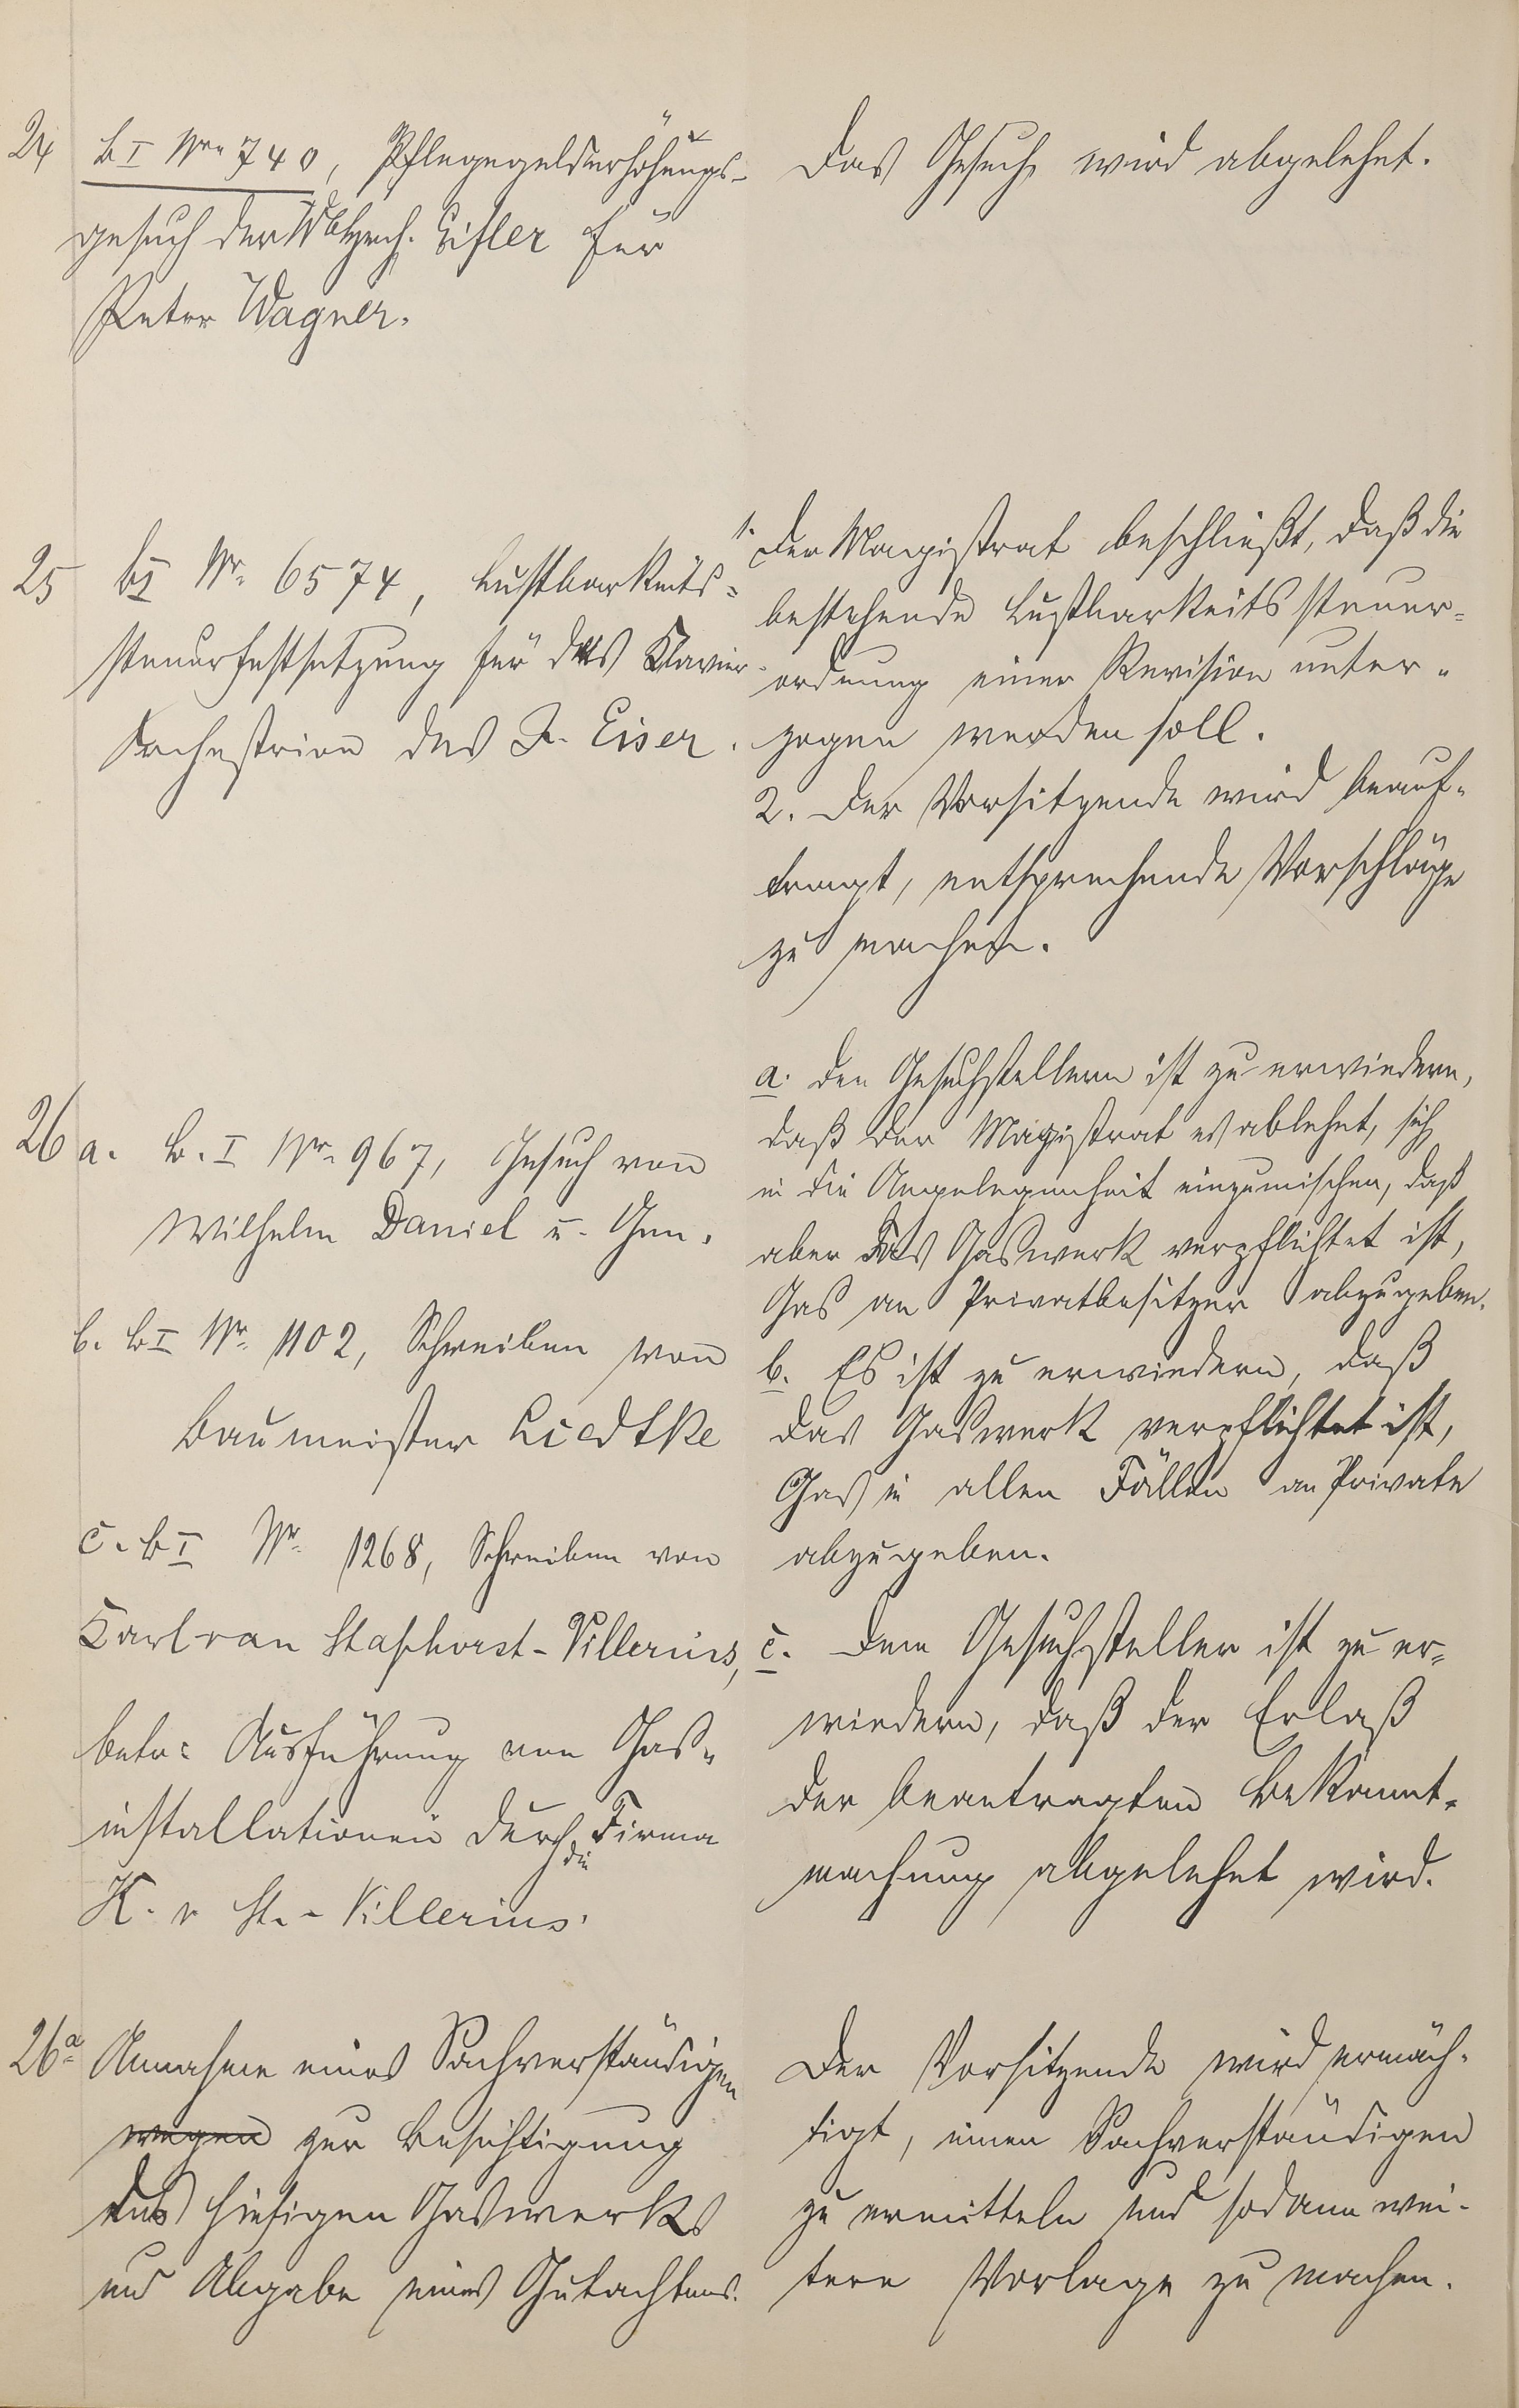 24 B I Nr. 740, Pflegegelderhöhungs-
gesuch der Eifler für
Peter Wagner.
Das Gesuch wird abgelehnt.
25 B I Nr. 6574, Lustbarkeits-
steuerfestsetzung für das Klavier-
Orchestrion des F. Eiser.
1. Der Magistrat beschließt, daß die
bestehende Lustbarkeitssteuer-
ordnung einer Revision unter-
zogen werden soll.
2. Der Vorsitzende wird beauf-
tragt, entsprechende Vorschläge
zu machen.
26 a. B. I Nr. 967, Gesuch von
Wilhelm Daniel u. Gen.
b. B I Nr. 1102, Schreiben von
Baumeister Liedtke
c. B I Nr. 1268, Schreiben von
Karl van Staphorst-Villerius,
betr. Ausführung von Gas-
installationen durch die Firma
K. v. St.-Villerius.
a. Den Gesuchstellern ist zu erwiedern,
daß der Magistrat es ablehnt, sich
in die Angelegenheit einzumischen, daß
aber das Gaswerk verpflichtet ist,
Gas an Privatbesitzer abzugeben.
b. Es ist zu erwiedern, daß
das Gaswerk verpflichtet ist,
Gas in allen Fällen an Private
abzugeben.
c. Dem Gesuchsteller ist zu er-
wiedern, daß der Erlaß
der beantragten Bekannt-
machung abgelehnt wird.
26a Annahme eines Sachverständigen
wegen zur Besichtigung
des hiesigen Gaswerks
und Abgabe eines Gutachtens.
Der Vorsitzende wird ermäch-
tigt, einen Sachverständigen
zu ermitteln und sodann wei-
tere Vorlage zu machen.